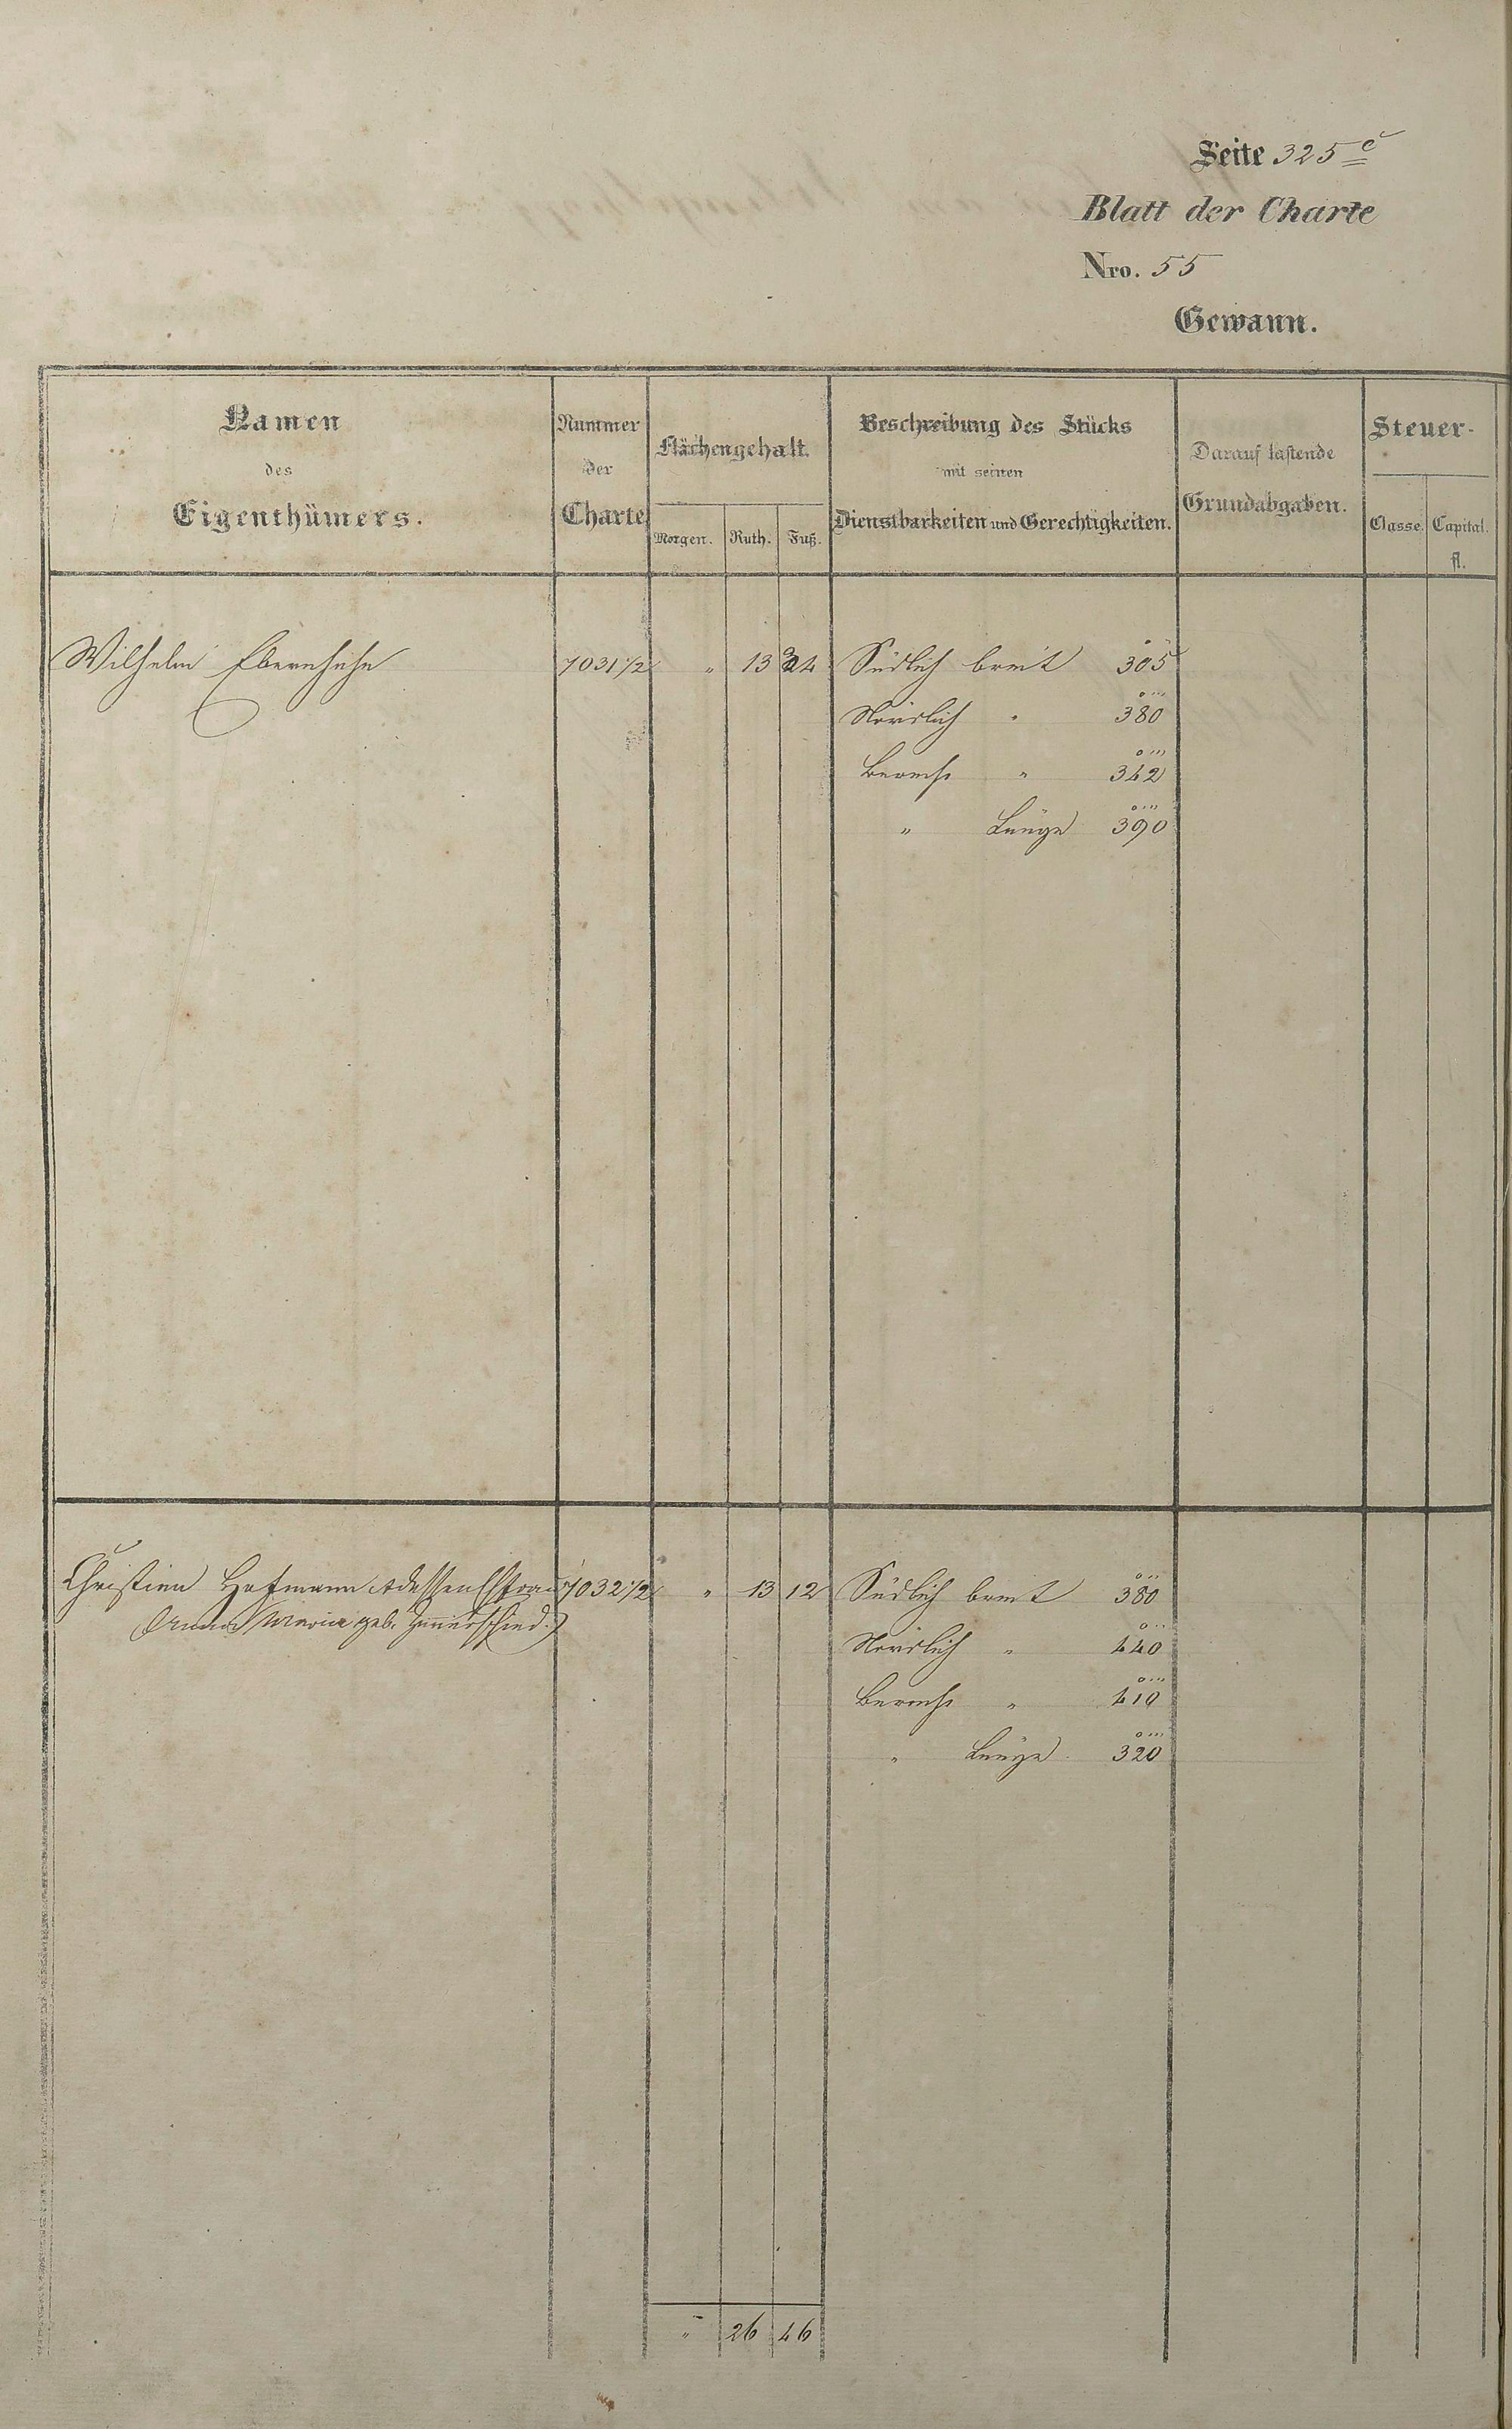 Seite 325 c
Blatt der Charte
Nro. 55
Gewann.
Namen des Eigenthümers.
Nummer der Charte
Flächengehalt.
Morgen. Ruth. Fuß.
Beschreibung des Stücks mit seinen Dienstbarkeiten und Gerechtigkeiten.
Darauf lastende Grundabgaben.
Steuer-
Classe. Capital. fl.
Wilhelm 7031 1/2 " 13 34 Südlich breit 305
Nördlich " 380
Berech " 342
" Länge 390
Christian Hofmann dessen Ehefrau 7032 1/2 " 13 12 Südlich breit 380
Anna Maria geb.
Nördlich " 440
Berech " 410
" Länge 320
" 26 46